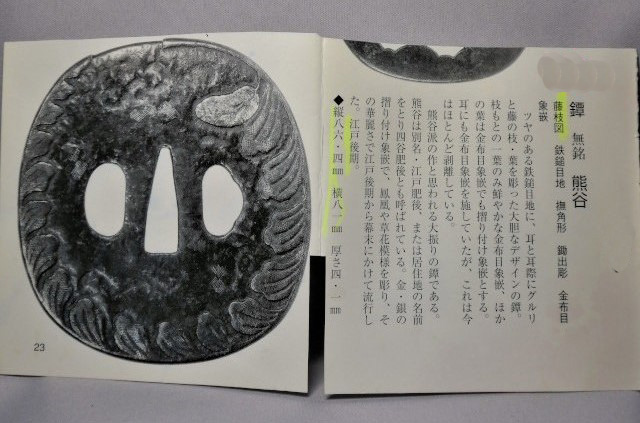 鐔 無銘 熊谷
藤枝図 鉄鎚目地 撫角形 鋤出彫 金布目
象嵌
ツヤのある鉄鎚目地に、耳と耳際にグルリ
と藤の枝・葉を彫った大胆なデザインの鐔。
枝もとの一葉のみ鮮やかな金布目象嵌、ほか
の葉は金布目象嵌でも摺り付け象嵌とする。
耳にも金布目象嵌を施していたが、これは今
はほとんど剥離している。
熊谷派の作と思われる大振りの鐔である。
熊谷は別名・江戸肥後、または居住地の名前
をとり四谷肥後とも呼ばれている。金・銀の
摺り付け象嵌で、鳳凰や草花模様を彫り、そ
の華麗さで江戸後期から幕末にかけて流行し
た。江戸後期。
◆縦八六・四㎜ 横八一㎜ 厚さ四・一㎜
23